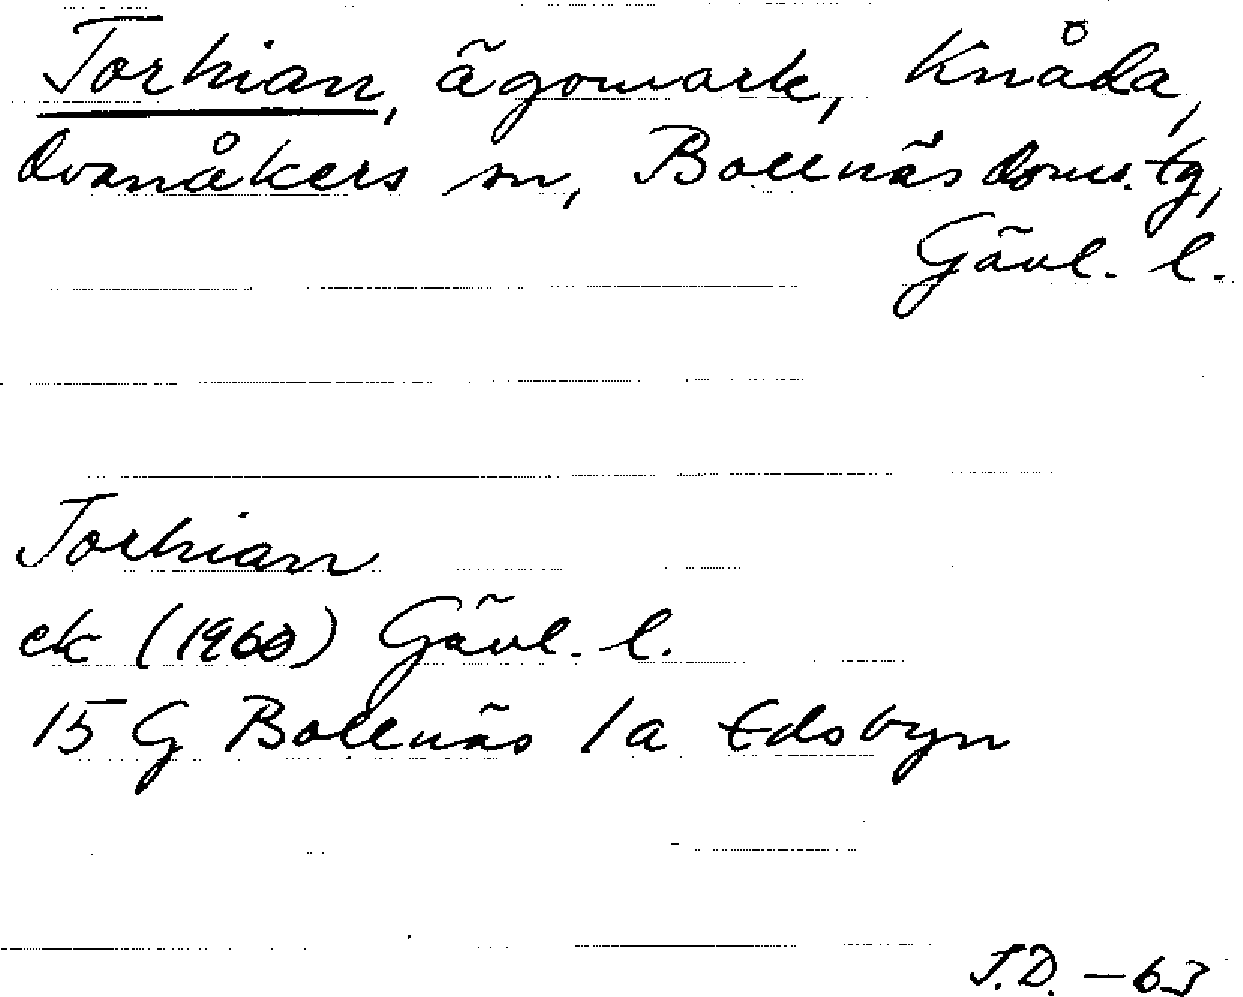 Torhian, ägomark, Knåda,
Ovanåkers sn, Bollnäs doms. tg,
Gävl. l.
Torhian
ek (1960) Gävl. l.
15 G Bollnäs 1a Edsbyn
J.D. - 63